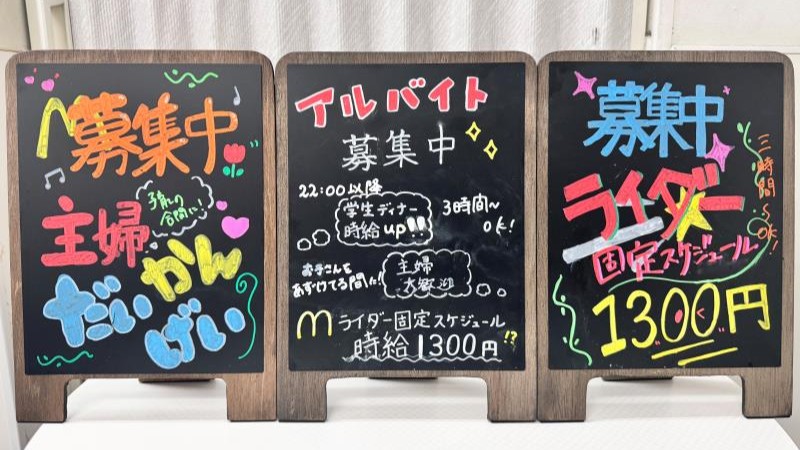 募集中
子育ての
合間に!
主婦
だいかん
げい
アルバイト
募集中
22:00以降
学生ディナー
時給up!!
3時間~
OK!
お子さんを
あずけてる間に!
主婦
大歓迎
ライダー固定スケジュール
時給1300円!?
募集中
ライダー
固定スケジュール
1300円
三時間~OK!